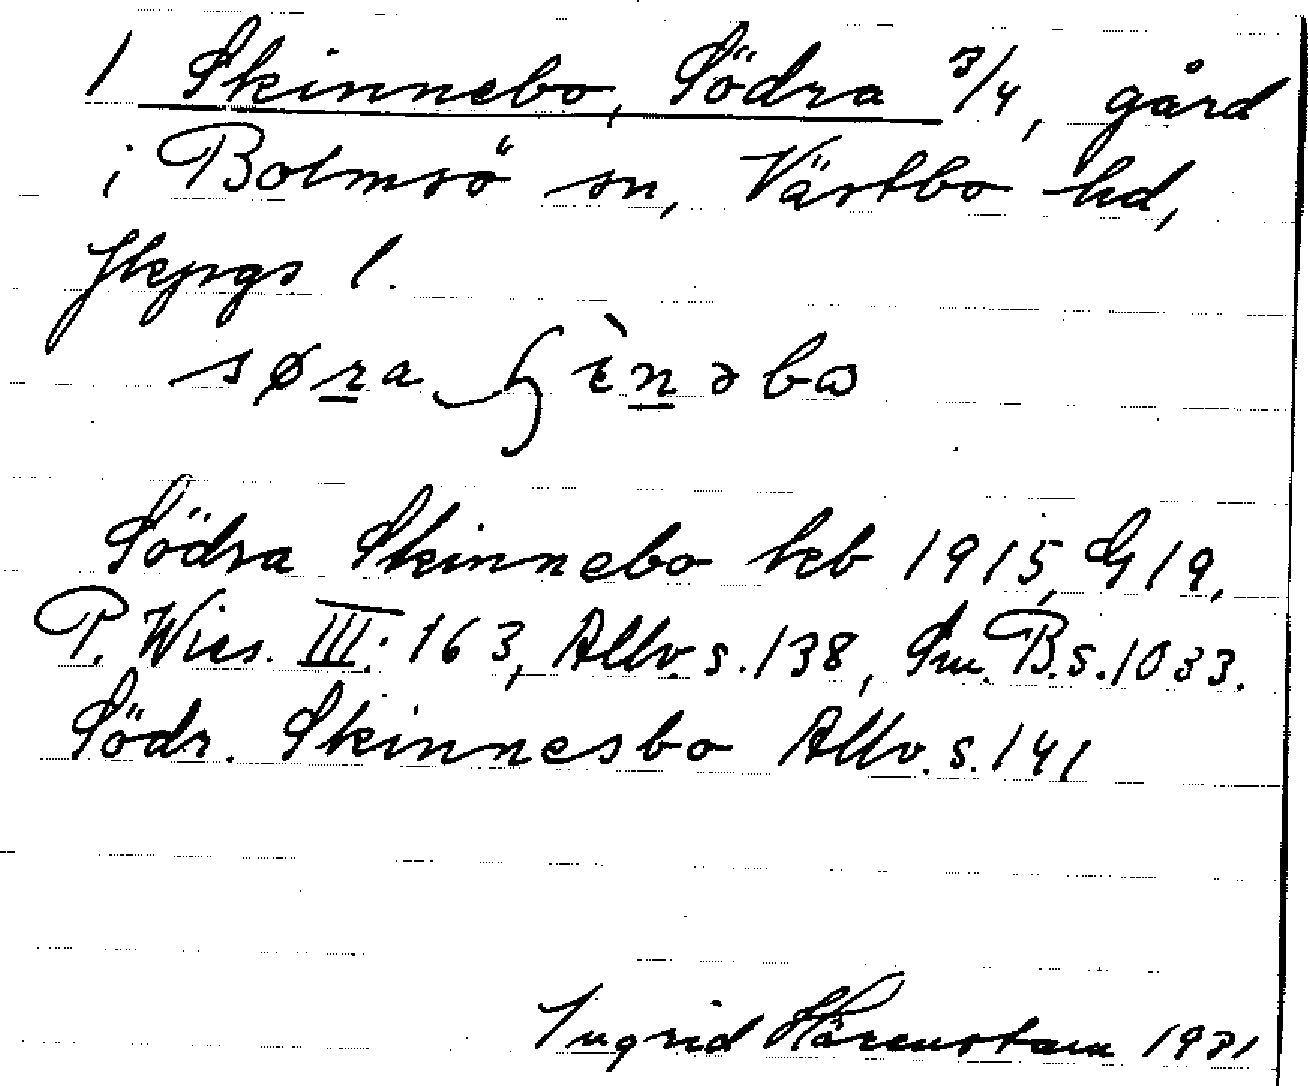 1 Skinnebo, Södra 3/4, gård
i Bolmsö sn, Västbo hd,
Jkpgs l.
søra ɧìnəbɷ
Södra Skinnebo keb 1915, G 19,
P. Wies. III: 163, Allv. s. 138, Sm. B. s. 1033.
Södr. Skinnesbo Allv. s. 141
Ingrid Härenstam 1931